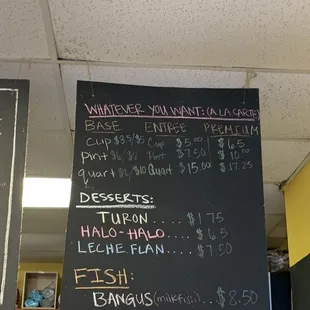 WHATEVER YOU WANT: (A LA CARTE)
BASE ENTREE PREMIUM
Cup $3.5/$5 Cup $5.00 $6.5
Pint $6/ Pint $7.50 $10.00
quart Quart $15.00 $17.25
DESSERTS:
TURON.... $1.75
HALO-HALO.... $6.5
LECHE FLAN.... $7.50
FISH:
BANGUS (milkfish).. $8.50